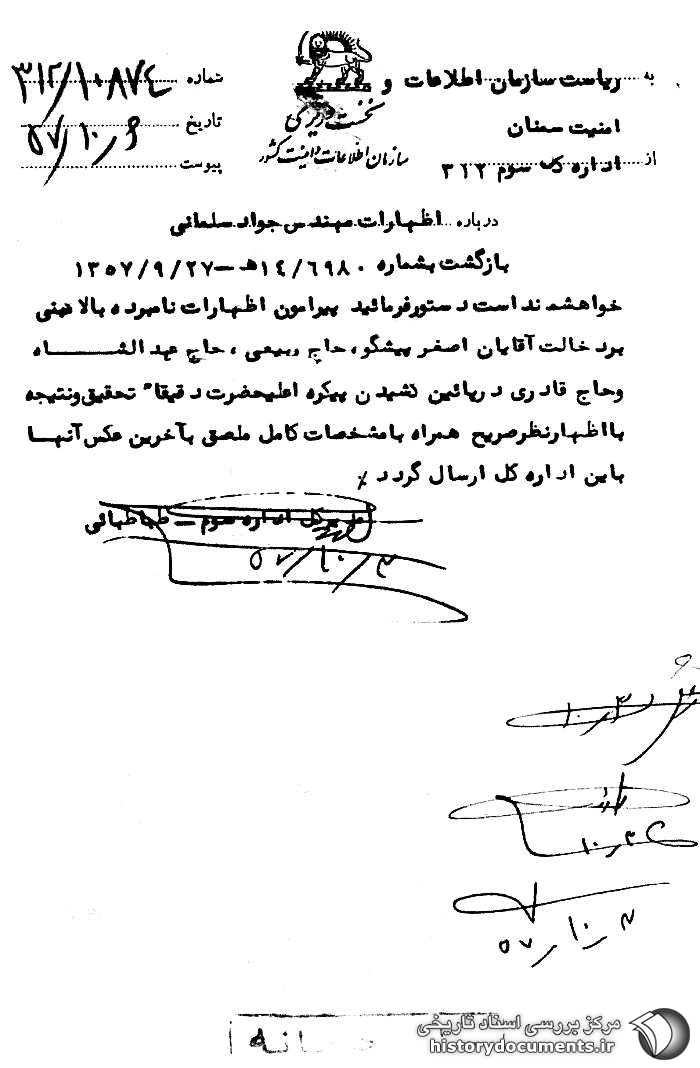 به ریاست سازمان اطلاعات و
امنیت سمنان
از اداره کل سوم ۳۱۲
نخست وزیری
سازمان اطلاعات و امنیت کشور
شماره ۳۱۲/۱۰۸۷۴
تاریخ ۵۷/۱۰/۶
پیوست
درباره اظهارات مهندس جواد سلمانی
بازگشت بشماره ۱۴/۶۹۸۰ﻫ -۱۳۵۷/۹/۲۷
خواهشمند است دستورفرمائید پیرامون اظهارات نامبرده بالا مبنی
بردخالت آقایان اصغر پیشگو، حاج ربیعی، حاج عبدالشاه
وحاج قادری درپائین کشیدن پیکره اعلیحضرت دقیقا" تحقیق ونتیجه
بااظهارنظرصریح همراه بامشخصات کامل ملصق بآخرین عکس آنها
باین اداره کل ارسال گردد ٪
مدیرکل اداره سوم – طباطبائی
۵۷/۱۰/۳
۱۰/۳
۱۰/۳
۵۷/۱۰/۳
مرکز بررسی اسناد تاریخی
historydocuments.ir